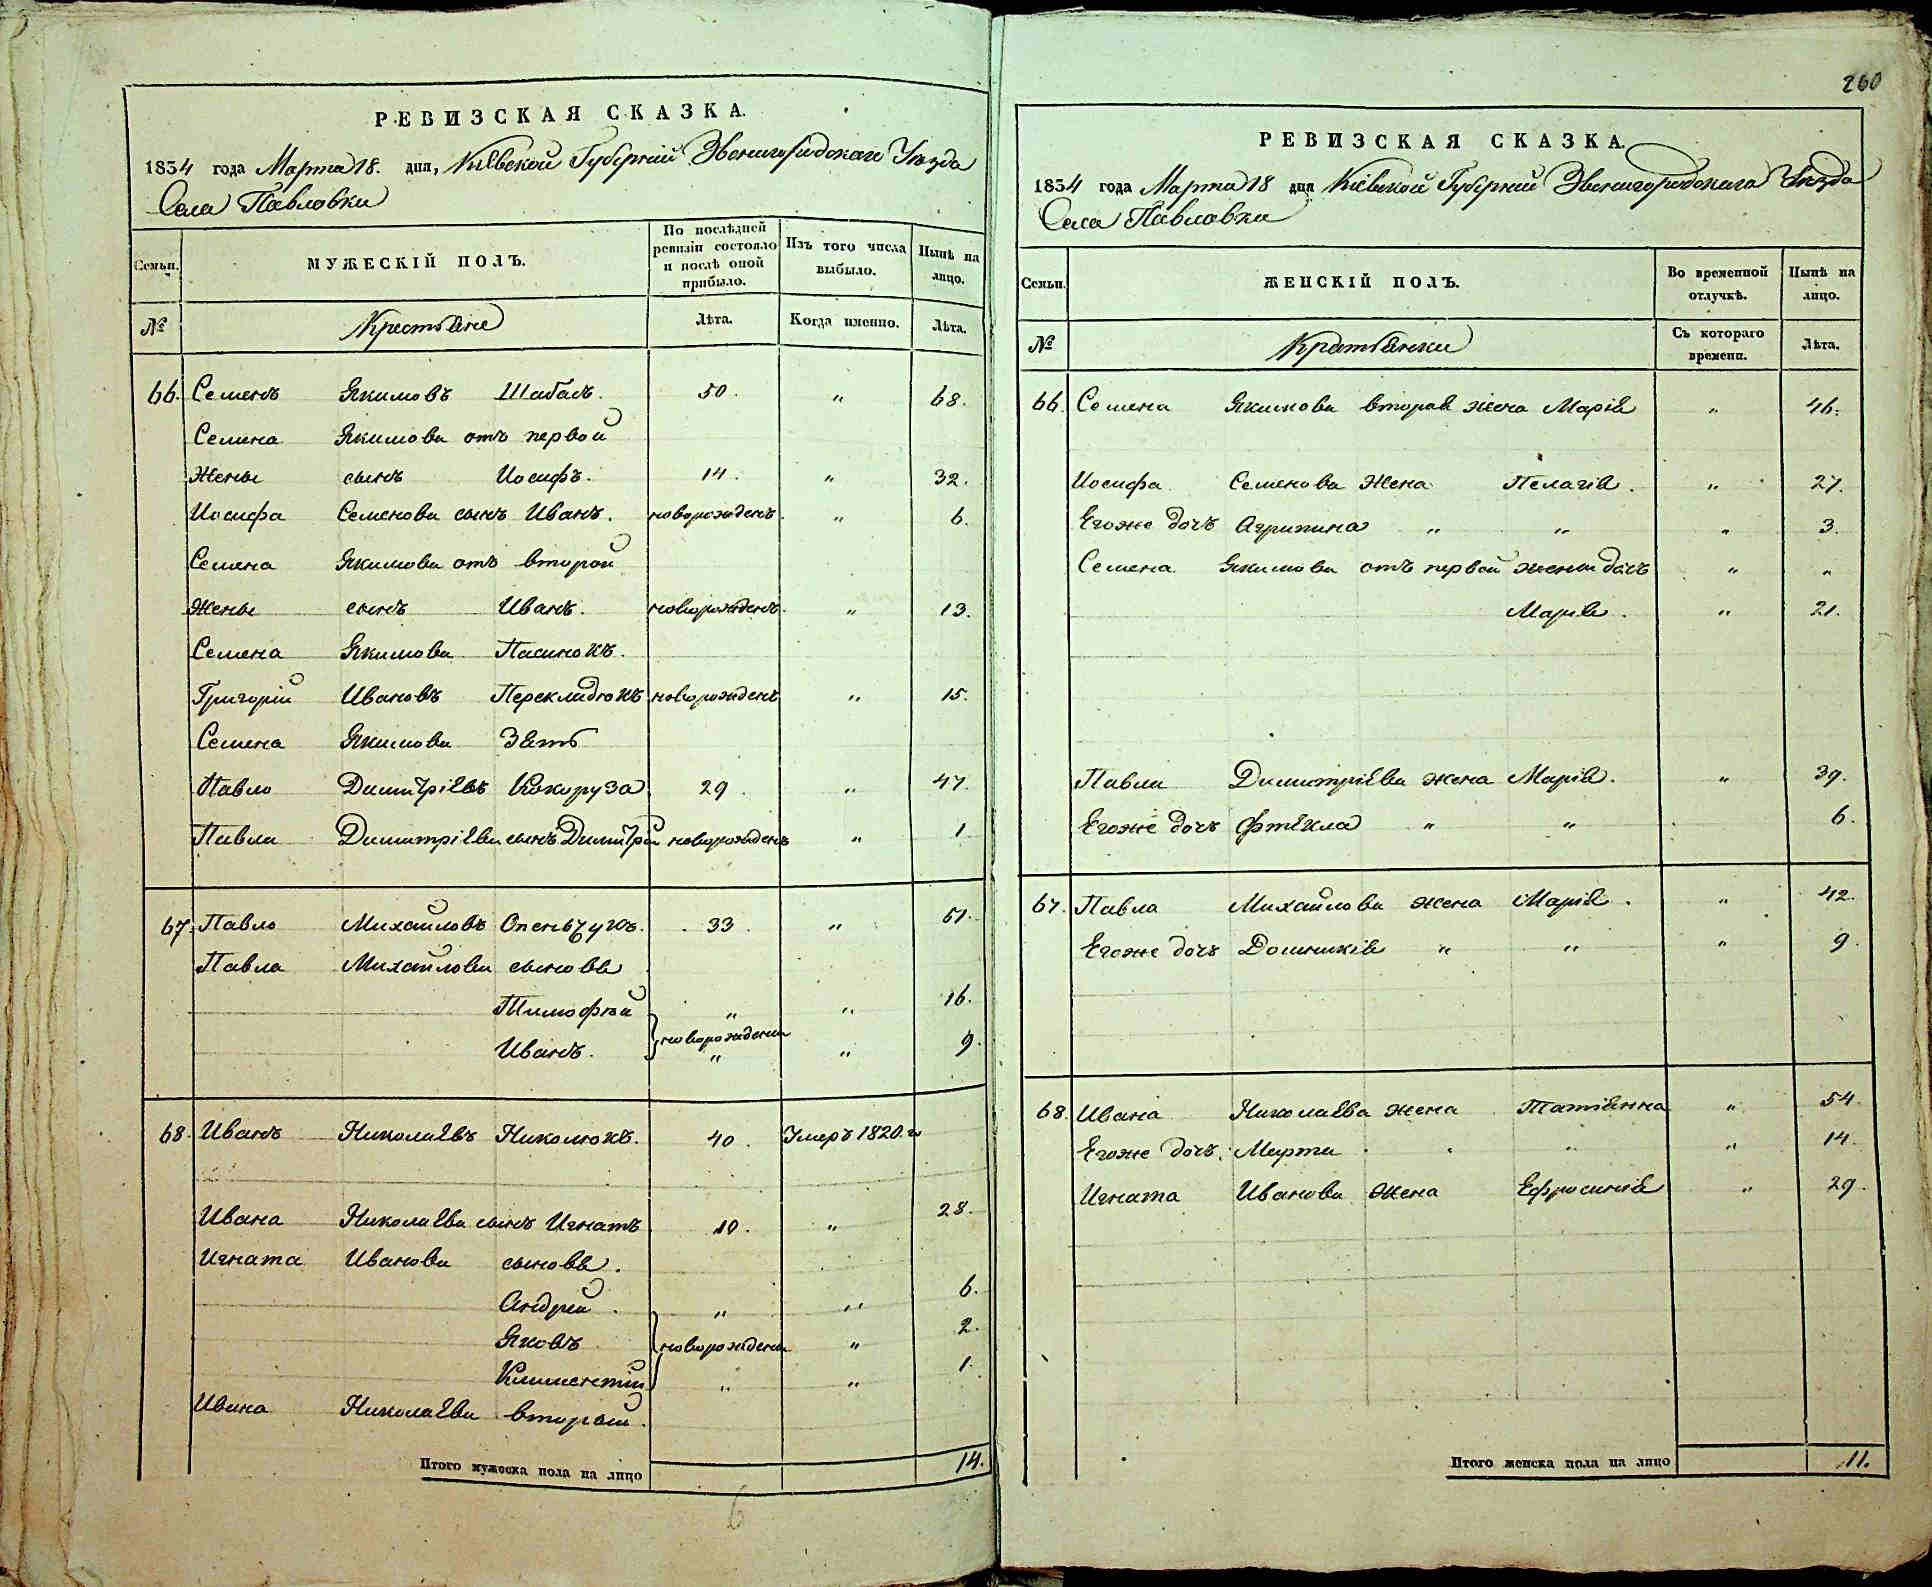 РЕВИЗСКАЯ СКАЗКА.
1834 года Марта 18. дня, Кіевской Губерніи Звенигородскаго Уѣзда
Села Павловки
Семьи.
МУЖЕСКІЙ ПОЛЪ.
По послѣдней ревизіи состояло и послѣ оной прибыло.
Изъ того числа выбыло.
Нынѣ на лицо.
№ Крестьяне Лѣта. Когда именно. Лѣта.
66. Семенъ Якимовъ Шабалъ. 50. „ 68.
Семена Якимова отъ первой
Жены сынъ Иосифъ. 14. „ 32.
Иосифа Семенова сынъ Иванъ. новорожденъ. „ 6.
Семена Якимова отъ второй
Жены сынъ Иванъ. новорожденъ. „ 13.
Семена Якимова Пасинокъ.
Григорій Ивановъ Перекладюкъ новорожденъ „ 15.
Семена Якимова Зять
Павло Димитріевъ Кокоруза 29. „ 47.
Павла Димитріева сынъ Димитрій новорожденъ „ 1
67. Павло Михайловъ 33. „ 51.
Павла Михайлова сыновья
Тимофѣй „ „ 16.
новорождены
Иванъ. „ „ 9.
68. Иванъ Николаевъ Николюкъ. 40. Умеръ 1820. г
Ивана Николаева сынъ Игнатъ 10. „ 28.
Игната Иванова сыновья.
Андрей. „ „ 6.
Яковъ новорождены „ 2.
Климентій „ „ 1.
Ивана Николаева второй.
Итого мужеска пола на лицо 14.
260
РЕВИЗСКАЯ СКАЗКА.
1834 года Марта 18 дня Кіевской Губерніи Звенигородскаго Уѣзда
Села Павловки
Семьи.
ЖЕНСКІЙ ПОЛЪ.
Во временной отлучкѣ.
Нынѣ на лицо.
№ Крестьянки Съ котораго времени. Лѣта.
66. Семена Якимова вторая жена Марія „ 46.
Иосифа Семенова Жена Пелагія. „ 27.
Егоже дочь Агрипина „ „ „ 3.
Семена Якимова отъ первой жены дочь „ „
Марія. „ 21.
Павла Димитріева жена Марія. „ 39.
Егоже дочь Фтекла „ „ 6.
67. Павла Михайлова жена Марія. „ 42.
Егоже дочь Домникія „ „ „ 9.
68. Ивана Николаева жена Татіянна „ 54.
Егоже дочь. Марта „ „ 14.
Игната Иванова Жена Ефросинія „ 29.
Итого женска пола на лицо 11.